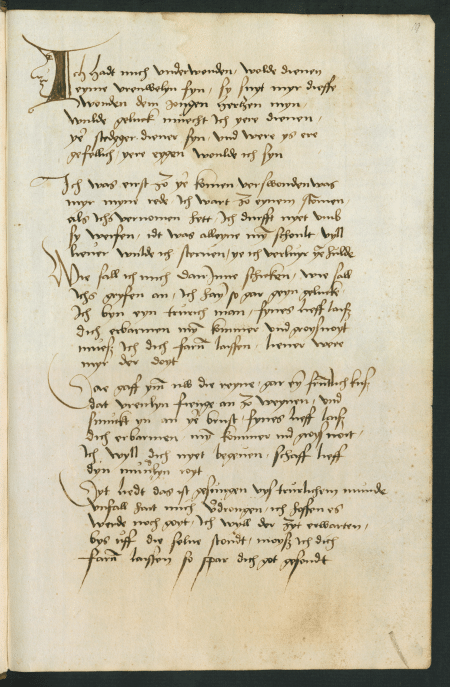 Ich hadt mich underwonden / wolde dienen
eyme vreuwelyn fyn / sy snyt myr dieffe
wonden dem jongen hertzen myn
wulde geluck muecht ich yere dienen /
yr stediger diener syn / und were ys ere
gefellich / yere eygen woulde ich syn
Ich was enst zo yr komen verswonden was
myr myne rede ich wart zo eynem stomen /
als ichs vernomen hett / ich dursst nyet umb
sy werfen / idt was alleyne myn schoult vyll
liever wulde ich sterven / ye ich verlure yr hulde
Wie sall ich mich dar inne schicken / wie sall
ichs gryfen an / ich hayn so gar geyn geluck
ich byn eyn trurich man / fynes lieff laiss
dich erbarmen myn kommer und groys noyt
muess ich dich faren laissen / liever were
myr der doyt
Sae gaff ym uss die reyne / gar eyn fruntlich kuss
dat vreulyn fienge an zo weynen / und
smuckt yn an yr brust / fynes lieff laiss
dich erbarmen / myn kommer und groiss noit /
ich wyll dich nyet begeven / schaff lieff
dyn mundlyn royt
Dyt liedt das ist gesungen uyss trurlichem munde
unfall hait mich verdrongen / ich hoffen es
werde noch goet / ich wyll der zyt erwarten /
bys uff die selve stondt / moyss ich dich
faren laissen so spar dich got gesondt